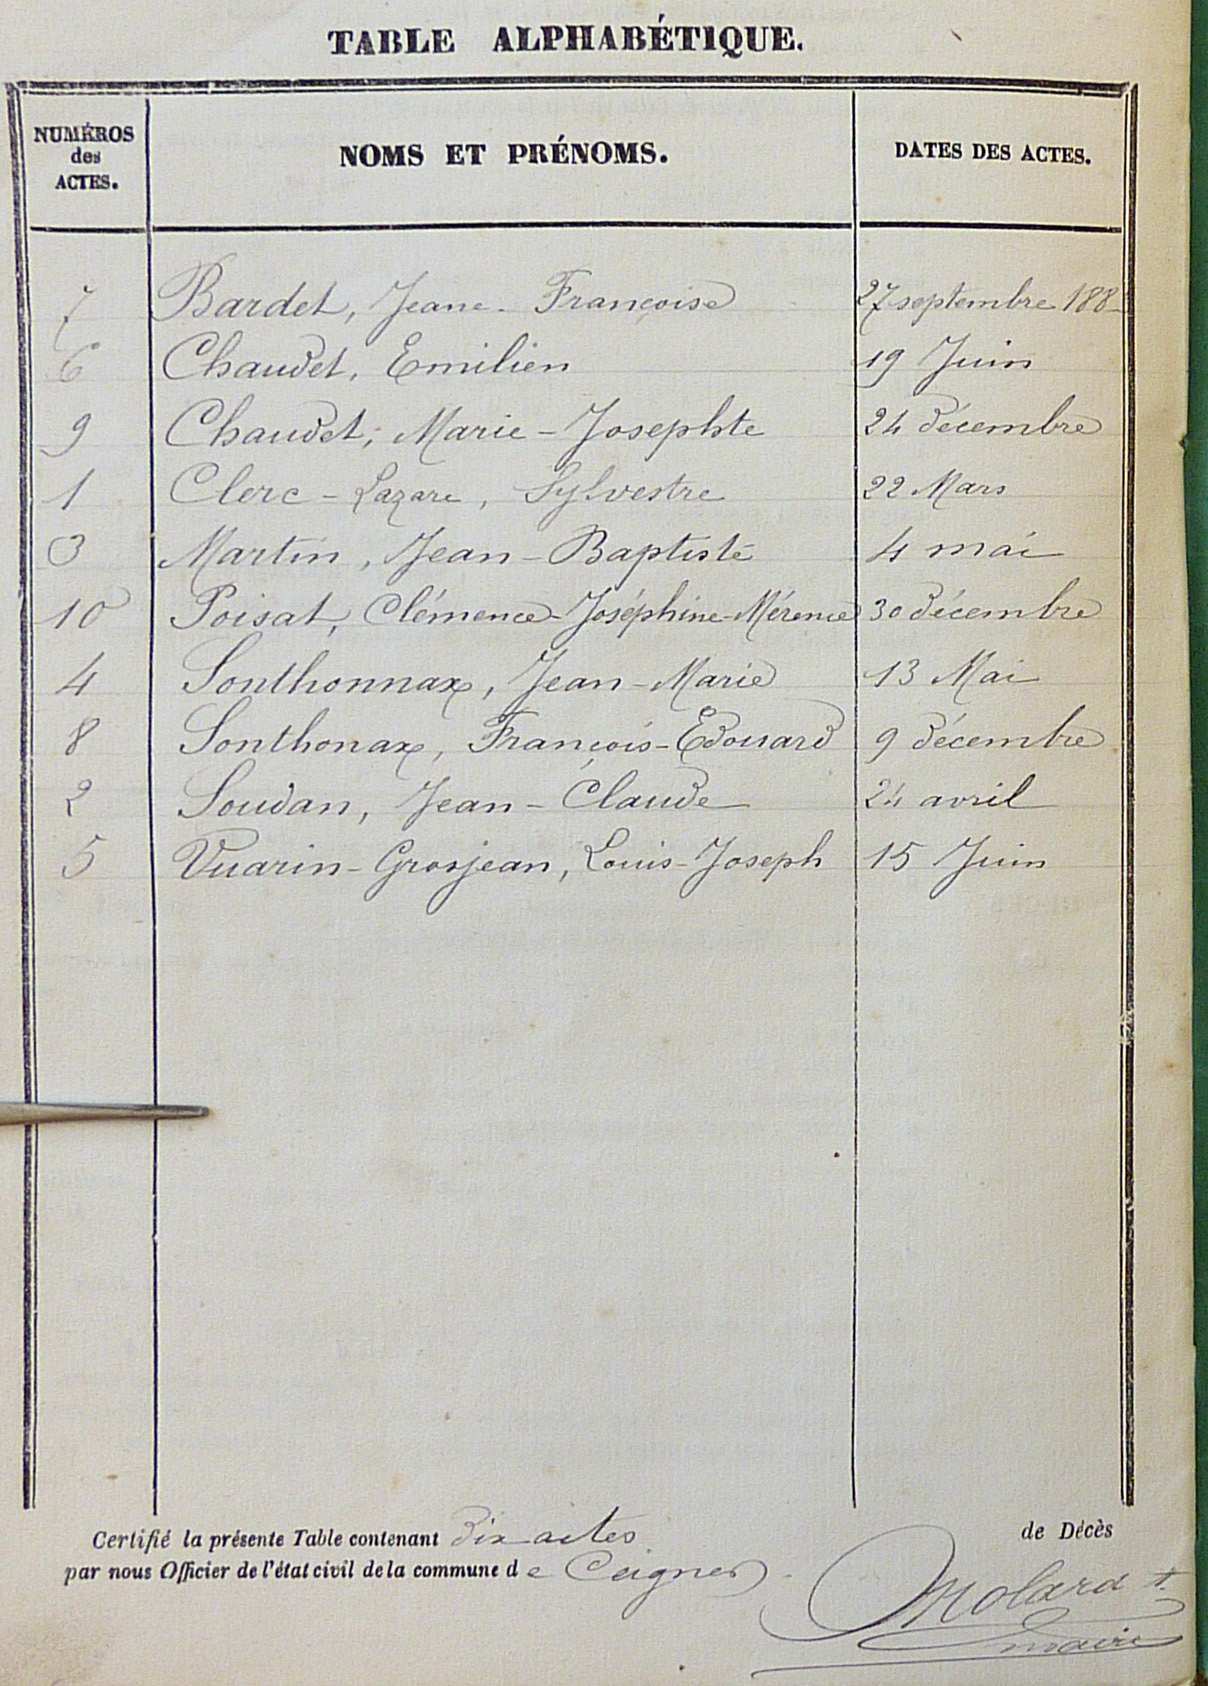 TABLE ALPHABÉTIQUE.
NUMÉROS des ACTES. NOMS ET PRÉNOMS. DATES DES ACTES.
7 Bardet, Jeane-Françoise 27 septembre 188
6 Chaudet, Emilien 19 Juin
9 Chaudet, Marie-Josephte 24 décembre
1 Clerc-Lazare, Sylvestre 22 Mars
3 Martin, Jean-Baptiste 4 mai
10 Poisat, Clémence-Joséphine-Mérence 30 décembre
4 Sonthonnax, Jean-Marie 13 Mai
8 Sonthonax, François-Edouard 9 décembre
2 Soudan, Jean-Claude 24 avril
5 Vuarin-Grosjean, Louis-Joseph 15 Juin
Certifié la présente Table contenant Dix actes de Décès
par nous Officier de l'état civil de la commune de Ceignes
Molard
maire